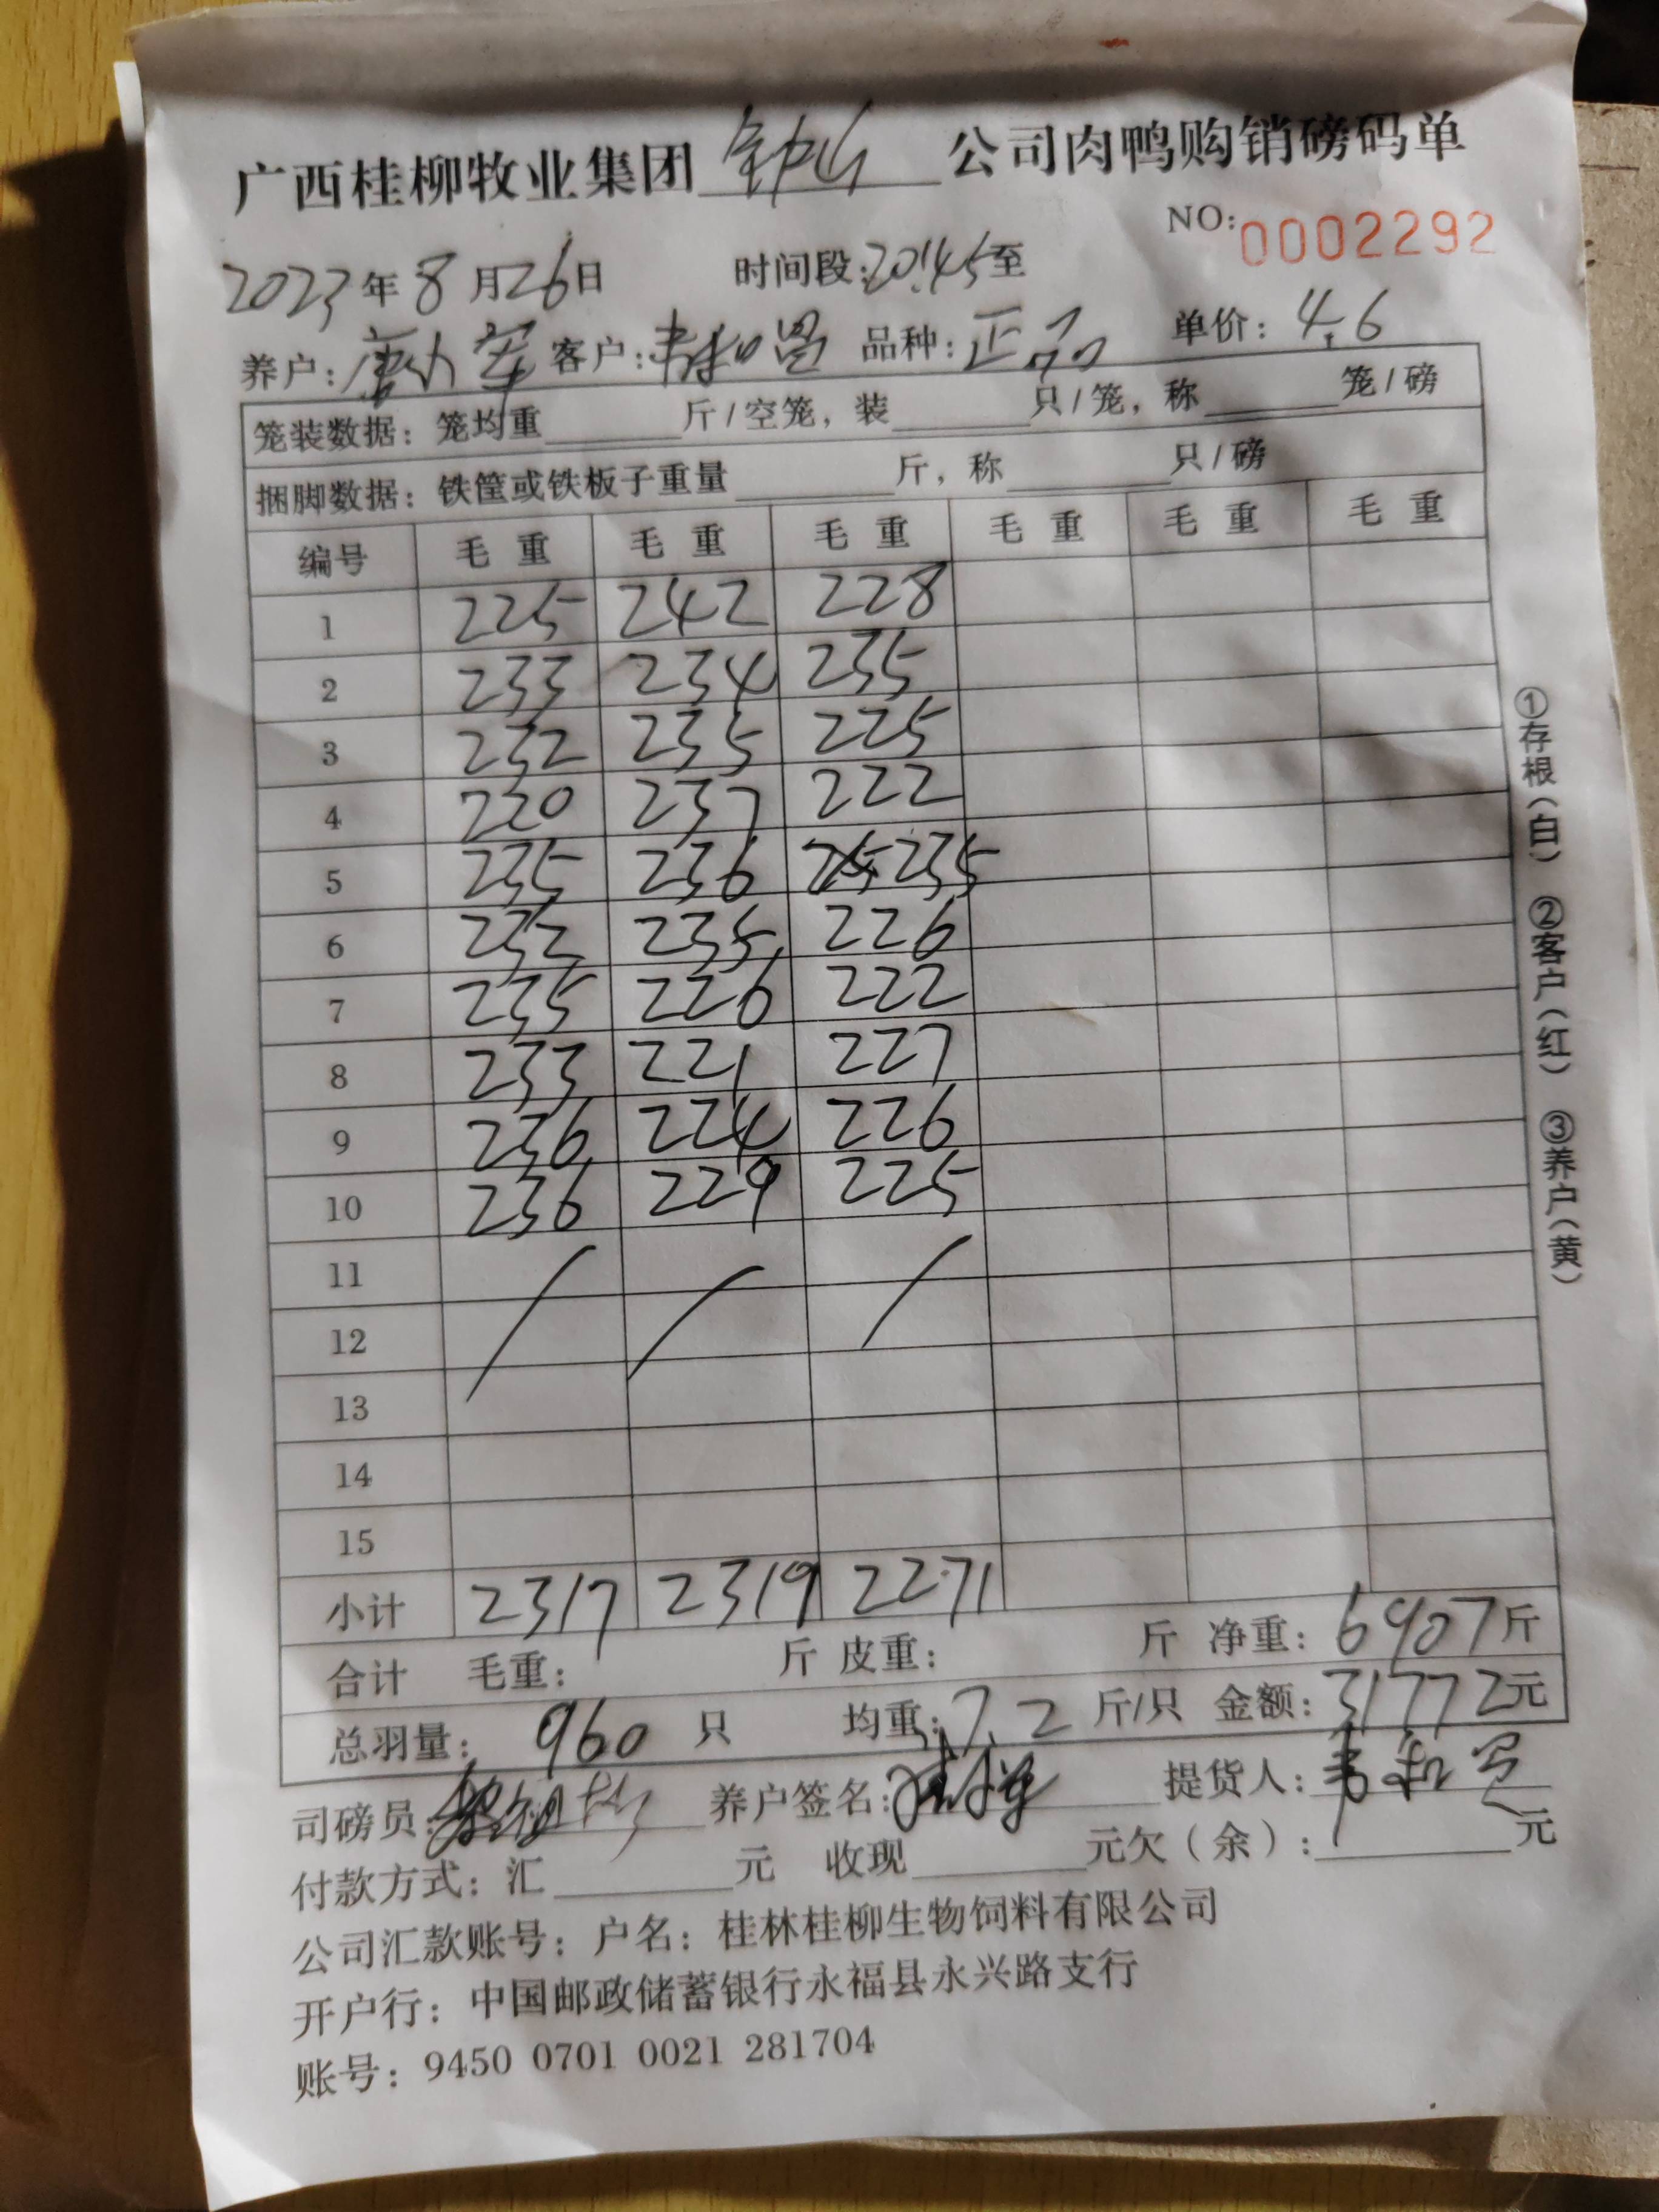 广西桂柳牧业集团 公司肉鸭购销磅码单
NO: 0002292
2023年8月26日 时间段:20:45至
养户: 客户:韦和昌 品种:正品 单价: 4.6
笼装数据: 笼均重 斤/空笼, 装 只/笼, 称 笼/磅
捆脚数据: 铁筐或铁板子重量 斤, 称 只/磅
编号 毛重 毛重 毛重 毛重 毛重 毛重
1 225 242 228
2 233 234 235
3 232 235 225
4 220 237 222
5 235 236 235
6 232 235 226
7 235 226 222
8 233 221 227
9 236 224 226
10 236 229 225
11
12
13
14
15
小计 2317 2319 2271
合计 毛重: 斤 皮重: 斤 净重: 6907斤
总羽量: 960 只 均重: 7.2 斤/只 金额: 31772元
司磅员: 养户签名: 提货人: 韦和昌
付款方式: 汇 元 收现 元欠(余): 元
公司汇款账号: 户名: 桂林桂柳生物饲料有限公司
开户行: 中国邮政储蓄银行永福县永兴路支行
账号: 9450 0701 0021 281704
①存根(白) ②客户(红) ③养户(黄)